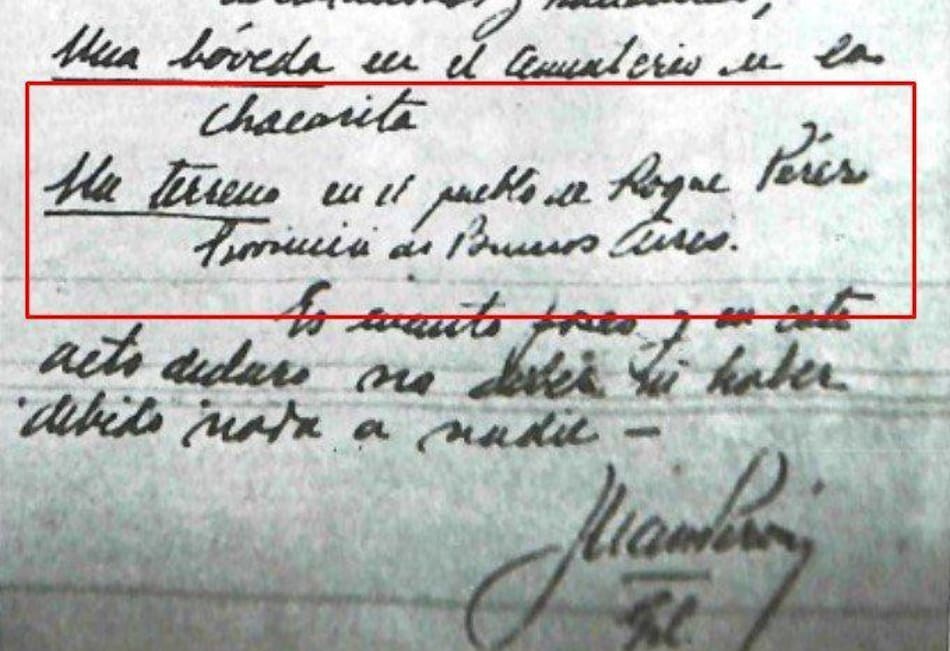 Una bóveda en el cementerio de la
Chacarita
Un terreno en el pueblo de Roque Pérez
Provincia de Buenos Aires.
Es cuanto poseo y en este
acto declaro no deber ni haber
debido nada a nadie —
Juan Perón
Gl.